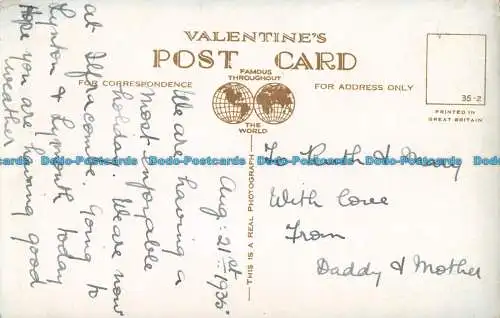 VALENTINE'S
POST CARD
FAMOUS
THROUGHOUT
THE
WORLD
FOR CORRESPONDENCE
FOR ADDRESS ONLY
35-2
PRINTED IN
GREAT BRITAIN
THIS IS A REAL PHOTOGRAPH
Aug: 21st 1935
We are having a
most enjoyable
holiday. We are now
at Ilfracombe. Going to
Lynton & Lynmouth today
Hope you are having good
weather
To Ruth & Mary
With love
From
Daddy & Mother
Dodo-Postcards Dodo-Postcards Dodo-Postcards Dodo-Postcards Dodo-Postcards